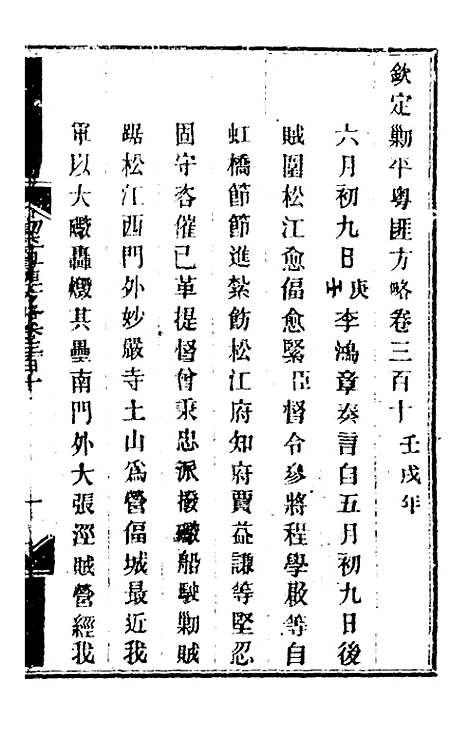 欽定勦平粵匪方略卷三百十 壬戌年
六月初九日庚子李鴻章奏言自五月初九日後
賊圍松江愈偪愈緊臣督令參將程學啟等自
虹橋節節進紮飭松江府知府賈益謙等堅忍
固守咨催已革提督曾秉忠派撥礮船駛勦賊
踞松江西門外妙嚴寺土山為營偪城最近我
軍以大礮轟燬其壘南門外大張涇賊營經我